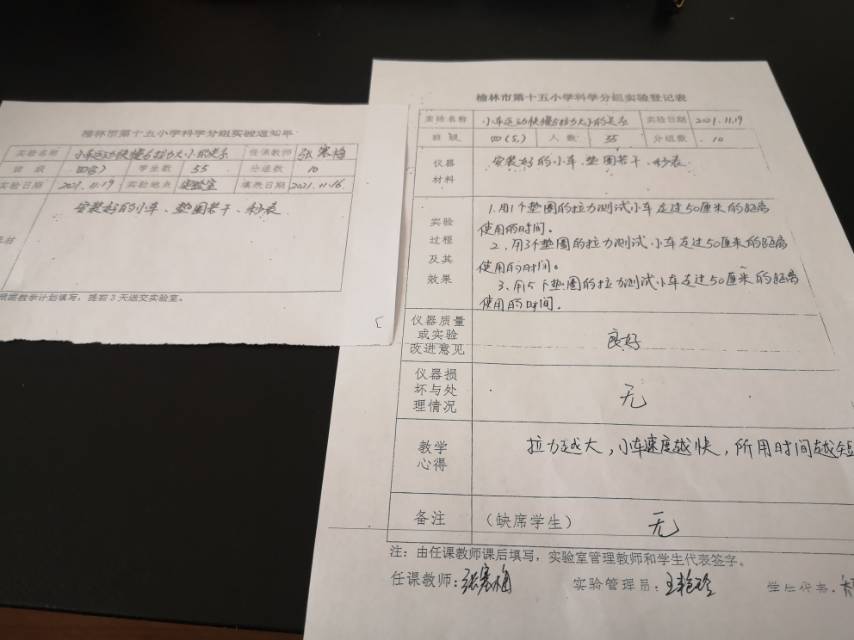 榆林市第十五小学科学分组实验通知单
实验名称 小车运动快慢与拉力大小的关系 任课教师
班级 学生数 55 分组数 10
实验日期 2021.11.19 实验地点 实验室 填表日期 2021.11.16
安装好的小车、垫圈若干、秒表
根据教学计划填写，提前3天送交实验室。
榆林市第十五小学科学分组实验登记表
实验名称 小车运动快慢与拉力大小的关系 实验日期 2021.11.19
班级 四(5) 人数 55 分组数 10
仪器
材料
安装好的小车、垫圈若干、秒表
实验
过程
及其
效果
1.用1个垫圈的拉力测试小车走过50厘米的距离
使用的时间。
2.用3个垫圈的拉力测试小车走过50厘米的距离
使用的时间。
3.用5个垫圈的拉力测试小车走过50厘米的距离
使用的时间。
仪器质量
或实验
改进意见
良好
仪器损
坏与处
理情况
无
教学
心得
拉力越大，小车速度越快，所用时间越短
备注 （缺席学生） 无
注：由任课教师课后填写，实验室管理教师和学生代表签字。
任课教师： 实验管理员： 学生代表：